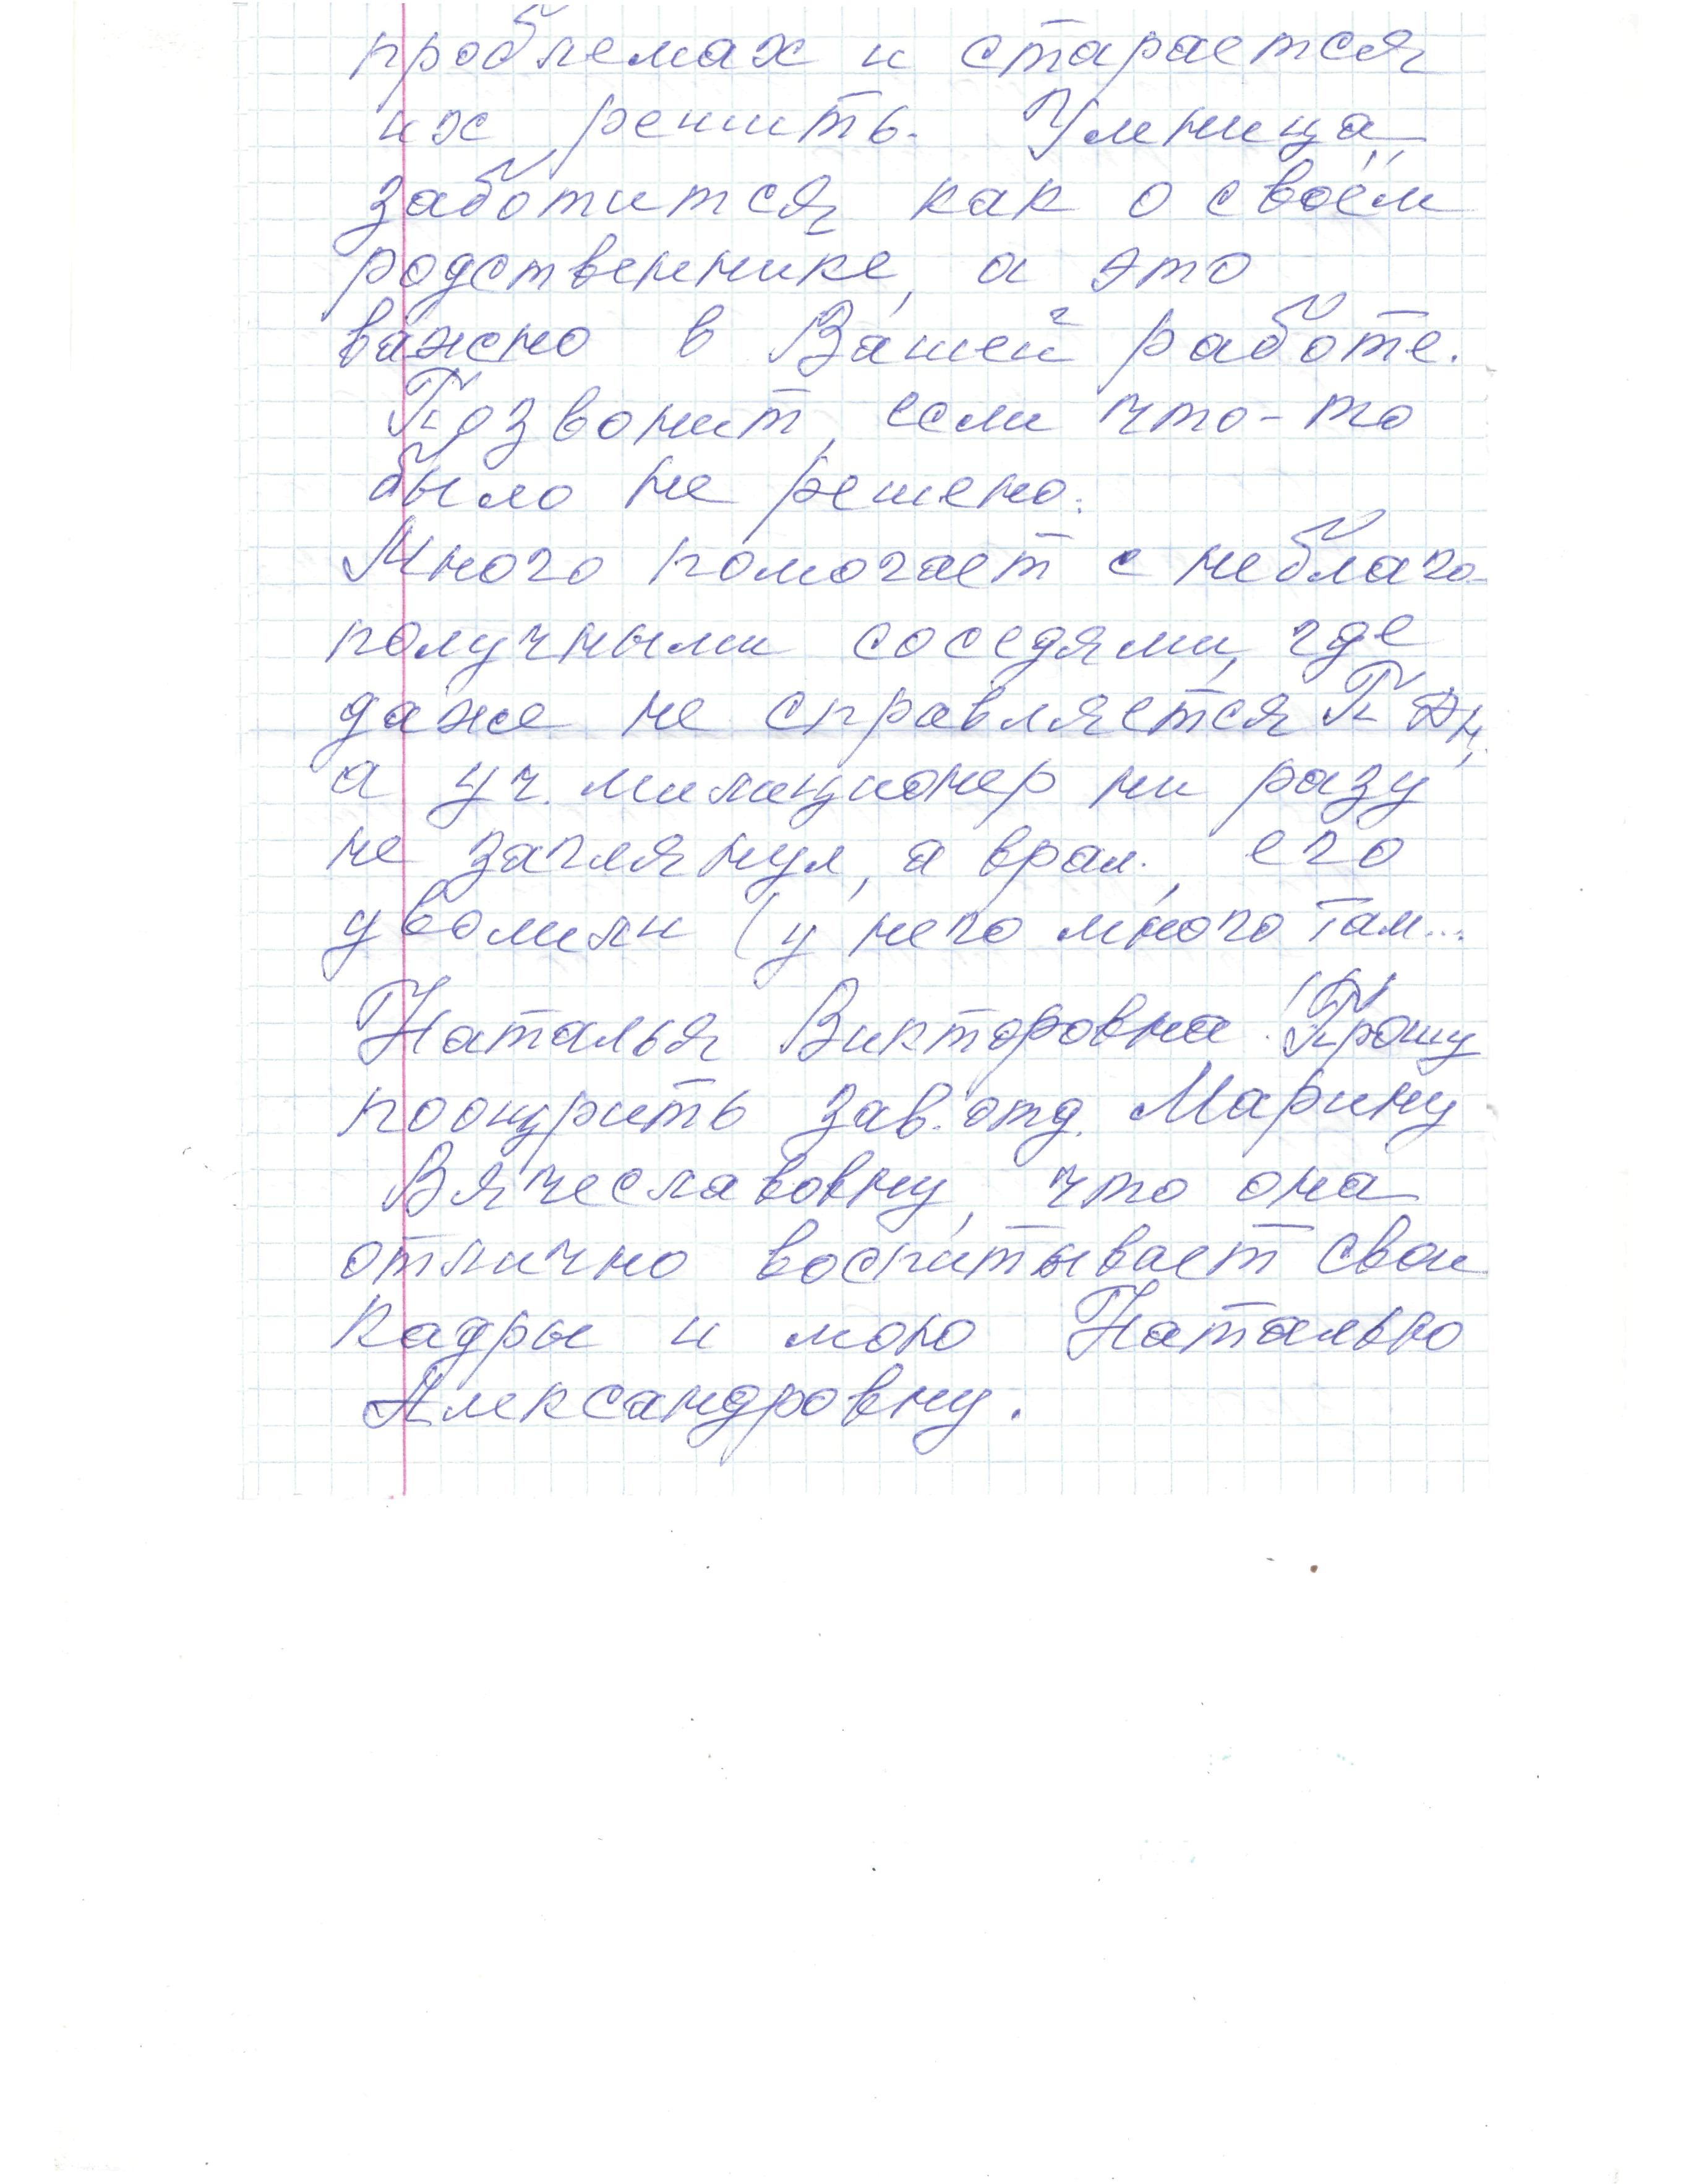 проблемах и старается
их решить. Умница,
заботится как о своём
родственнике, а это
важно в Вашей работе.
Позвонит, если что-то
было не решено.
Много помогает с неблаго-
получными соседями, где
даже не справляется ПДН,
а уч. милиционер ни разу
не заглянул, а врал., его
уволили (у него много там...
Наталья Викторовна! Прошу
поощрить зав. отд. Марину
Вячеславовну, что она
отлично воспитывает свои
кадры и мою Наталью
Александровну.